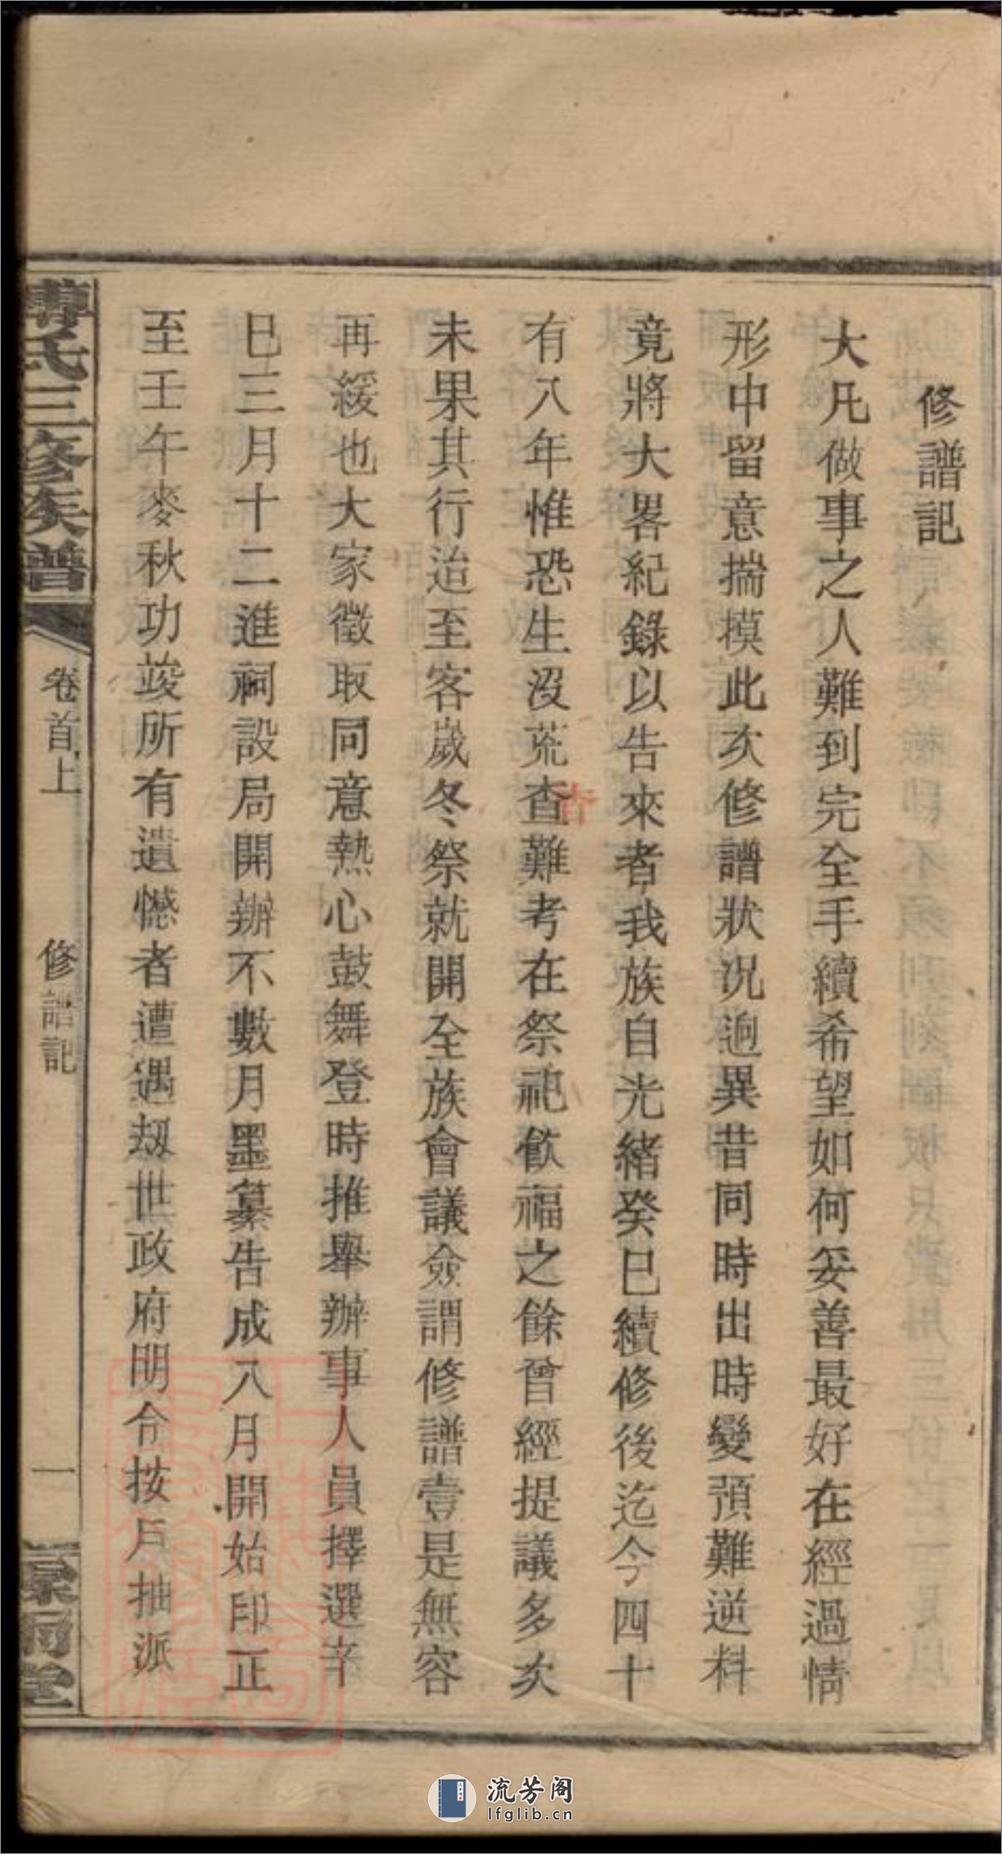 修譜記
大凡做事之人難到完全手續希望如何妥善最好在經過情
形中留意揣摸此次修譜狀况迥異昔同時出時變預難逆料
竟將大畧紀錄以告來者我族自光緒癸巳續修後迄今四十
有八年惟恐生沒荒查難考在祭祀飲福之餘曾經提議多次
未果其行迨至客歲冬祭就開全族會議僉謂修譜壹是無容
再緩也大家徵取同意熱心鼓舞登時推舉辦事人員擇選辛
巳三月十二進祠設局開辦不數月墨纂告成八月開始印正
至壬午麥秋功竣所有遺憾者遭遇刼世政府明令按戶抽派
傅氏三修族譜
卷首上
修譜記
一
霖雨堂
查
流芳阁
lfglib.cn